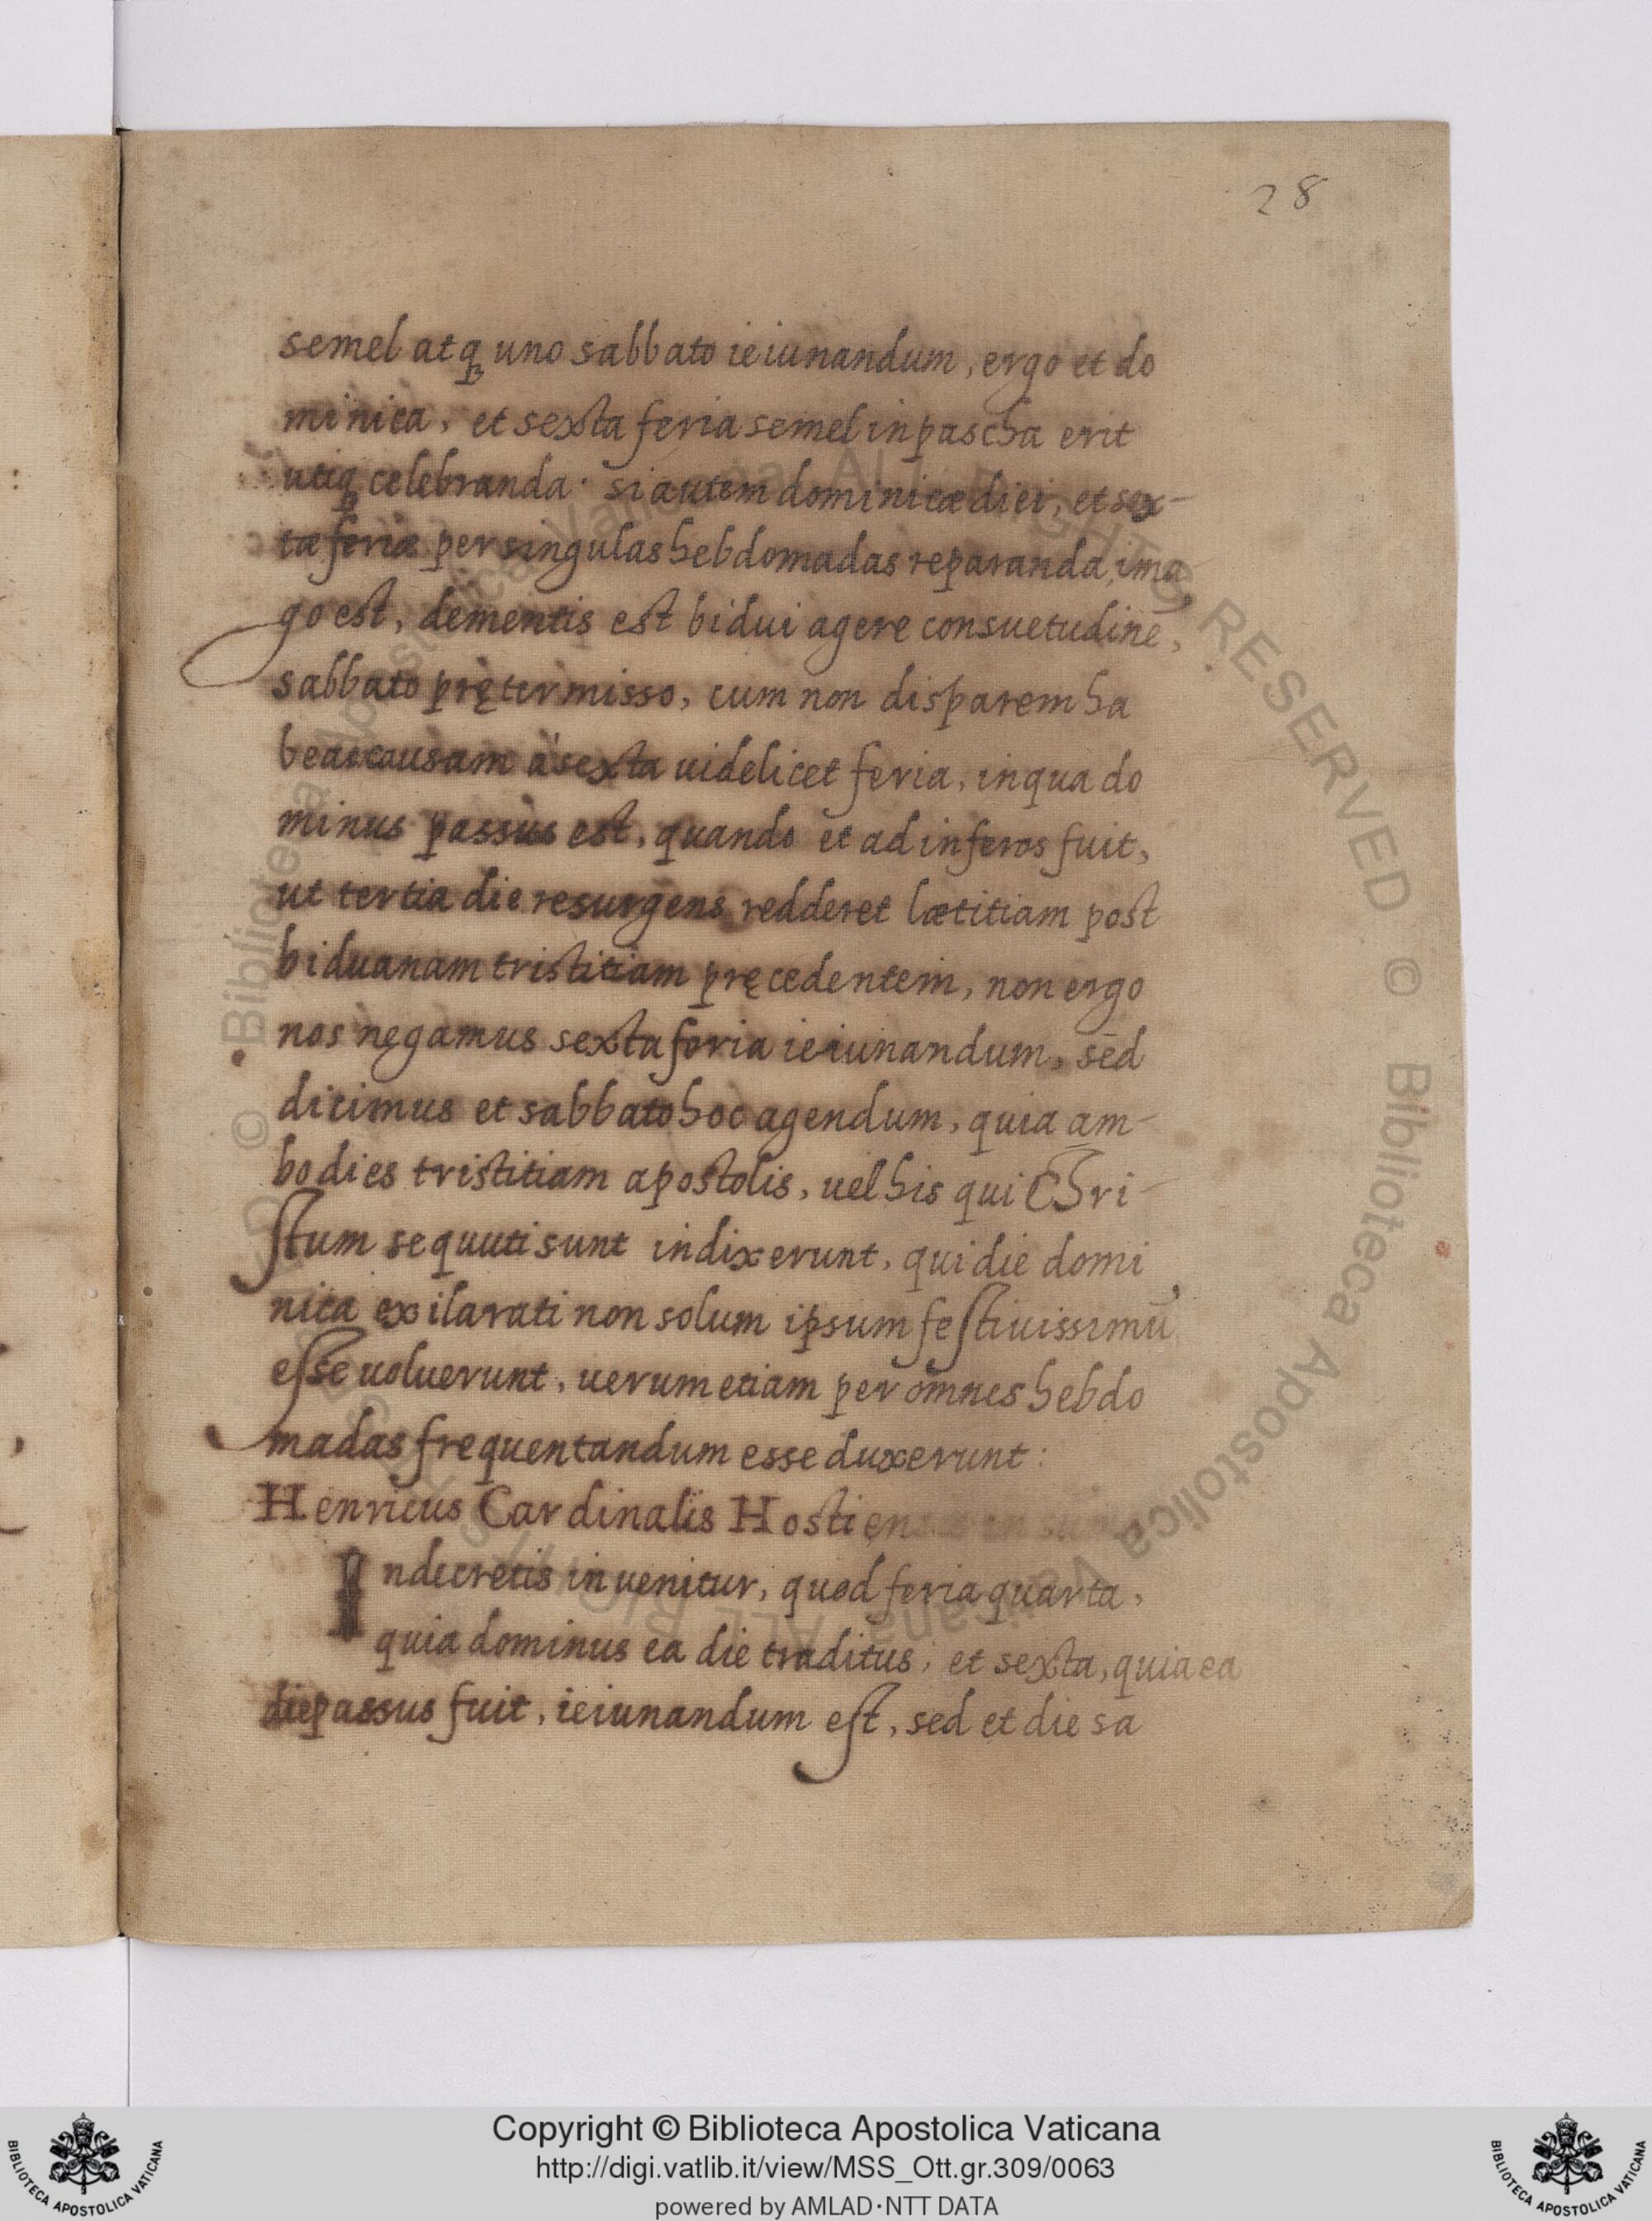 28
semel atq; uno sabbato ieiunandum, ergo et do
minica, et sexta feria semel in pascha erit
utiq; celebranda. si autem dominicæ diei, et sex-
tæ feriæ per singulas hebdomadas reparanda ima
go est, dementis est bidui agere consuetudinē,
sabbato prętermisso, cum non disparem ha
beat causam à sexta uidelicet feria, in qua do
minus passus est, quando et ad inferos fuit,
ut tertia die resurgens redderet lætitiam post
biduanam tristitiam pręcedentem, non ergo
nos negamus sexta feria ieiunandum, sed
dicimus et sabbato hoc agendum, quia am-
bo dies tristitiam apostolis, uel his qui Chri-
stum sequuti sunt indixerunt, qui die domi
nica exilarati non solum ipsum festiuissimū
esse uoluerunt, uerum etiam per omnes hebdo
madas frequentandum esse duxerunt:
Henricus Cardinalis Hostien
In decretis inuenitur, quod feria quarta,
quia dominus ea die traditus, et sexta, quia ea
die passus fuit, ieiunandum est, sed et die sa
Copyright © Biblioteca Apostolica Vaticana
http://digi.vatlib.it/view/MSS_Ott.gr.309/0063
powered by AMLAD·NTT DATA